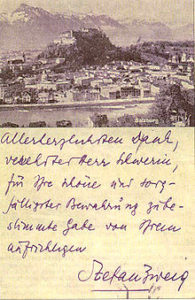 Salzburg
Allerherzlichsten Dank,
verehrter Herr
für Ihre schöne und sorg-
fältigster Bewahrung zube-
stimmte Gabe von Ihrem
aufrichtigen
Stefan Zweig